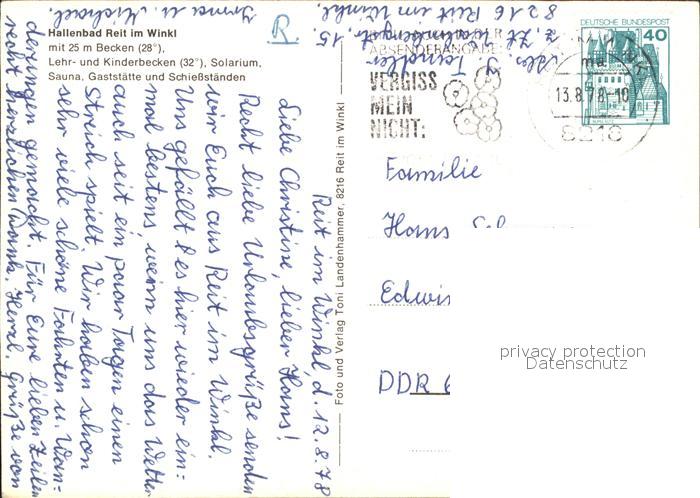 Hallenbad Reit im Winkl
mit 25 m Becken (28°),
Lehr- und Kinderbecken (32°), Solarium,
Sauna, Gaststätte und Schießständen
Reit im Winkl d. 12.8.78
Liebe Christine, lieber Hans!
Recht liebe Urlaubsgrüße senden
wir Euch aus Reit im Winkl.
Uns gefällt es hier wieder ein-
mal bestens wenn uns das Wetter
auch seit ein paar Tagen einen
Strich spielt. Wir haben schon
sehr viele schöne Fahrten u. Wan-
derungen gemacht. Für Eure lieben Zeilen
recht herzlichen Dank. Herzl. Grüße von
Irma u. Michael.
R
Foto und Verlag Toni Landenhammer, 8216 Reit im Winkl
ABSENDERANGABE:
VERGISS
MEIN
NICHT:
15.
8216 Reit im Winkl.
DEUTSCHE BUNDESPOST
40
13.8.78-10
8216
Familie
Hans
Edwin
DDR
privacy protection
Datenschutz